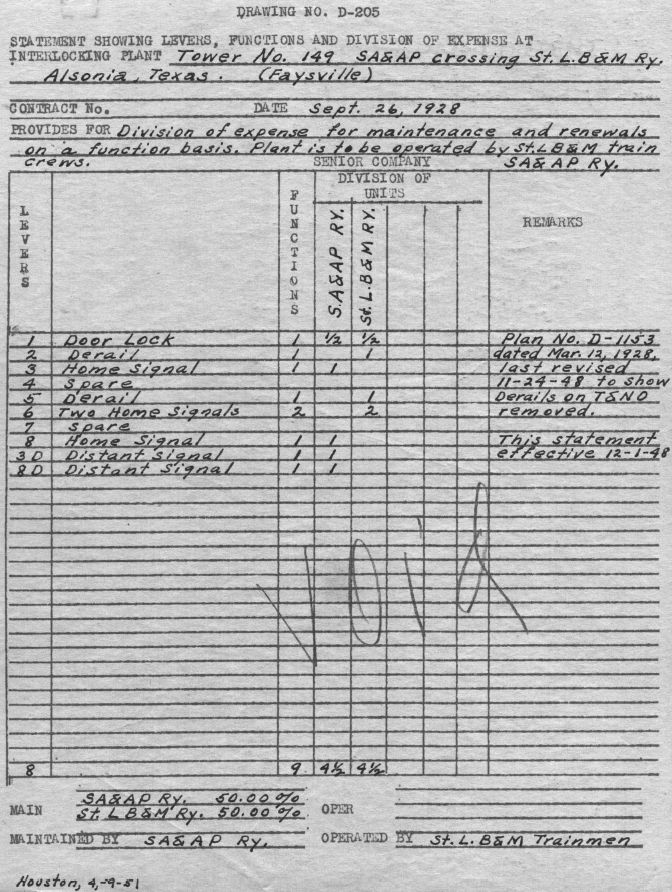 DRAWING NO. D-205
STATEMENT SHOWING LEVERS, FUNCTIONS AND DIVISION OF EXPENSE AT
INTERLOCKING PLANT Tower No. 149 SA&AP crossing St.L.B&M Ry.
Alsonia, Texas. (Faysville)
CONTRACT No. DATE Sept. 26, 1928
PROVIDES FOR Division of expense for maintenance and renewals
on a function basis. Plant is to be operated by St.LB&M train
crews. SENIOR COMPANY SA&AP Ry.
LEVERS FUNCTIONS DIVISION OF UNITS REMARKS
S.A&AP RY. St.L.B&M RY.
1 Door Lock 1 ½ ½ Plan No. D-1153
2 Derail 1 1 dated Mar. 12, 1928,
3 Home Signal 1 1 last revised
4 Spare 11-24-48 to show
5 Derail 1 1 Derails on T&NO
6 Two Home Signals 2 2 removed.
7 Spare
8 Home Signal 1 1 This statement
3D Distant Signal 1 1 effective 12-1-48
8D Distant Signal 1 1
VOID
8 9 4½ 4½
MAIN SA&AP Ry. 50.00% OPER
St.L B&M Ry. 50.00%
MAINTAINED BY SA&AP Ry. OPERATED BY St.L.B&M Trainmen
Houston, 4-9-51